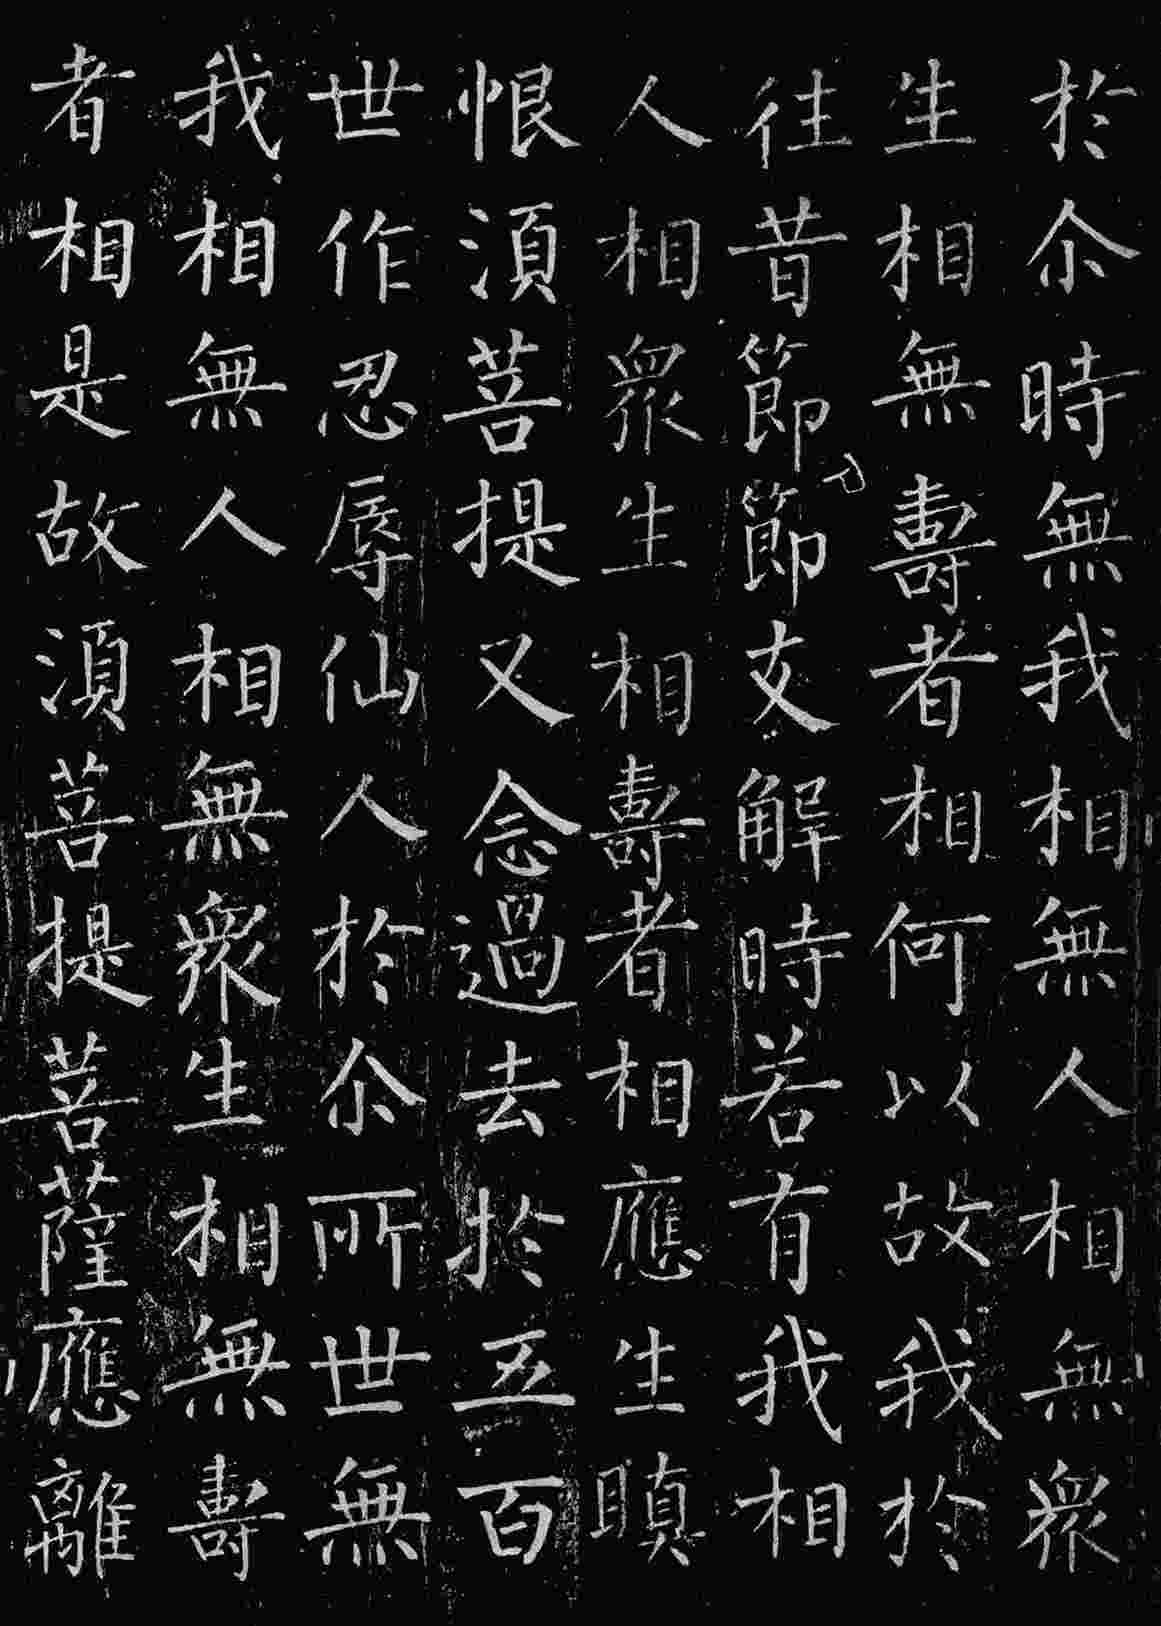 於尒時無我相無人相無眾
生相無壽者相何以故我於
往昔節節支解時若有我相
人相眾生相壽者相應生瞋
恨湏菩提又念過去於五百
世作忍辱仙人於尒所世無
我相無人相無眾生相無壽
者相是故湏菩提菩薩應離